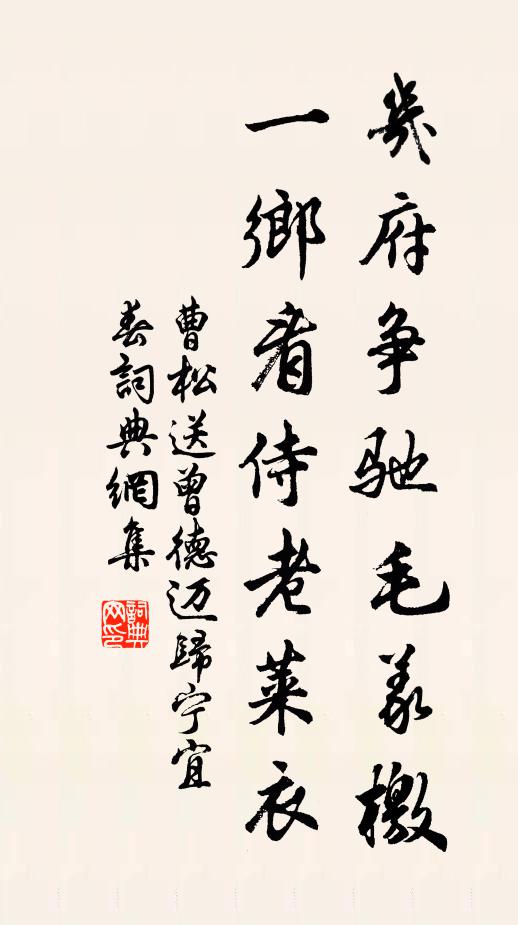 幾府争馳毛義檄
一鄉看侍老萊衣
曹松送曾德迈歸宁宜
春詞典網集
詞典网印